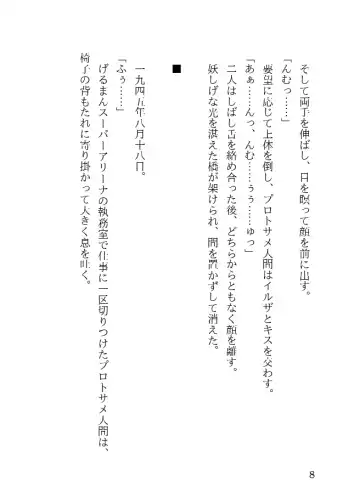 そして両手を伸ばし、目を瞑って顔を前に出す。
「んむっ……」
要望に応じて上体を倒し、プロトサメ人間はイルザとキスを交わす。
「あぁ……んっ、んむ……ぅぅ……ゅっ」
二人はしばし舌を絡め合った後、どちらからともなく顔を離す。
妖しげな光を湛えた橋が架けられ、間を置かずして消えた。
■
一九四五年八月十八日。
「ふぅ……」
げるまんスーパーアリーナの執務室で仕事に一区切りつけたプロトサメ人間は、
椅子の背もたれに寄り掛かって大きく息を吐く。
8